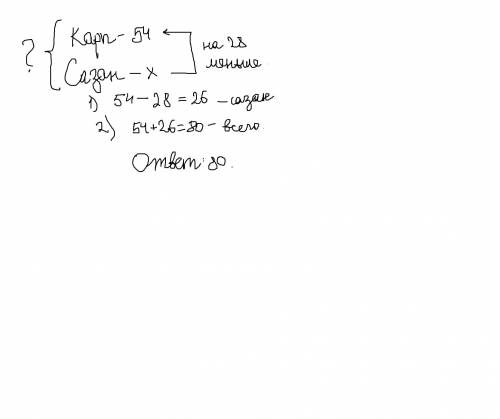 ? { Карп - 54
на 28
меньше
Сазан - х
1) 54 - 28 = 26 - сазан
2) 54+26=80 - всего.
Ответ: 80.